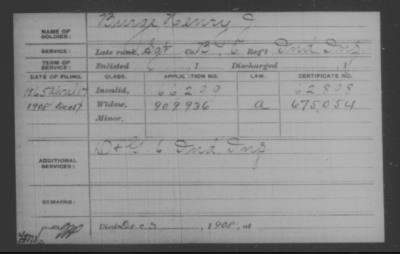 NAME OF SOLDIER: Burge Henry C
SERVICE: Late rank, Sgt Co. B, 6 Reg't Ind Inf
TERM OF SERVICE: Enlisted , 1 Discharged , 1
DATE OF FILING. CLASS. APPLICATION NO. LAW. CERTIFICATE NO.
1865 Invalid, 66200 62808
1908 Widow, 909936 a 675,054
Minor,
ADDITIONAL SERVICES: 6 Ind Inf
REMARKS:
Died Dec 3, 1908, at